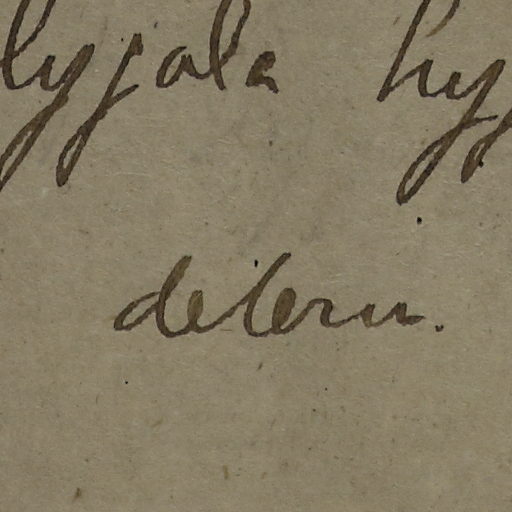 lygala hyg
detern.